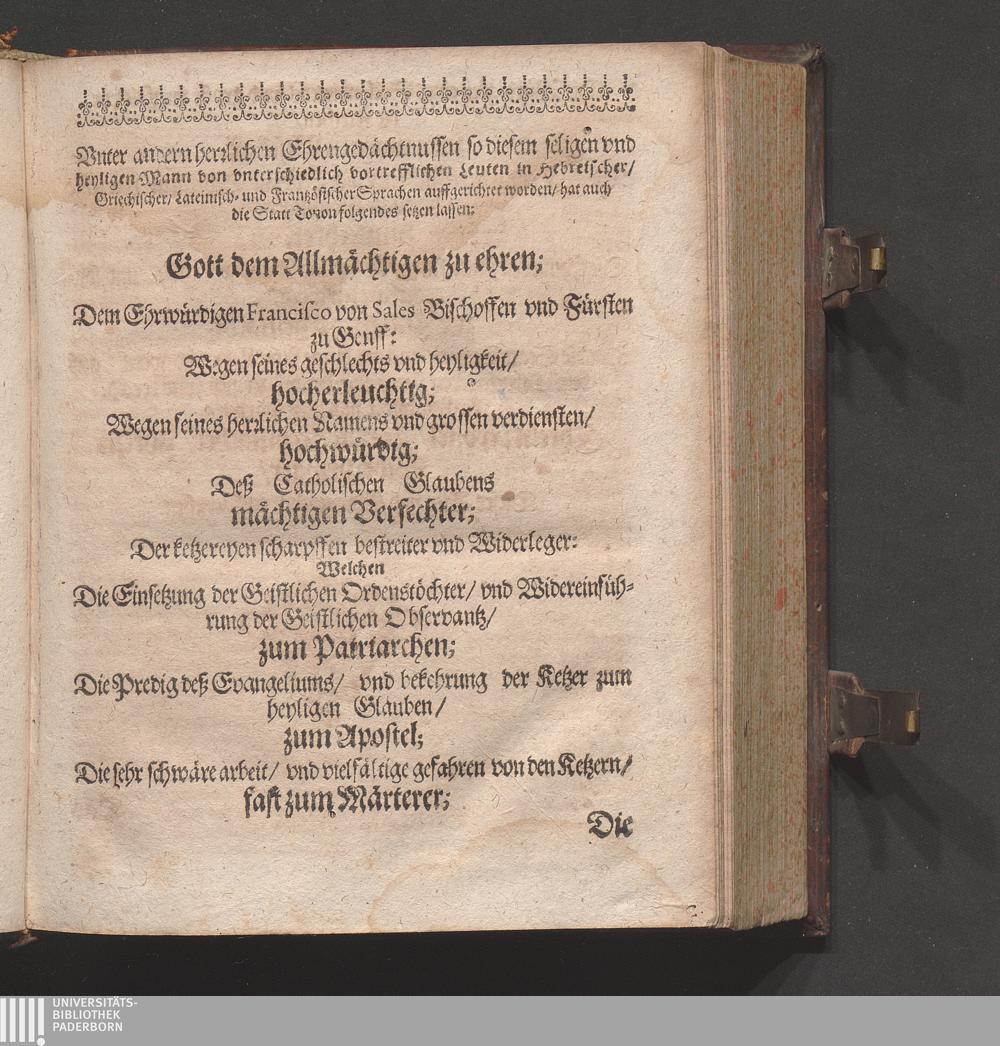 Vnter andern herꝛlichen Ehrengedächtnussen so diesem seligen vnd
heyligen Mann von vnterschiedlich vortrefflichen Leuten in Hebreischer/
Griechischer/ Lateinisch- und Frantzösischer Sprachen auffgerichtet worden/ hat auch
die Statt Tonon folgendes setzen lassen:
Gott dem Allmächtigen zu ehren;
Dem Ehrwürdigen Francisco von Sales Bischoffen vnd Fürsten
zu Genff:
Wegen seines geschlechts vnd heyligkeit/
hocherleuchtig;
Wegen seines herꝛlichen Namens vnd grossen verdiensten/
hochwürdig;
Deß Catholischen Glaubens
mächtigen Verfechter;
Der ketzereyen scharpffen bestreiter vnd Widerleger:
Welchen
Die Einsetzung der Geistlichen Ordenstöchter/ vnd Widereinfüh-
rung der Geistlichen Observantz/
zum Patriarchen;
Die Predig deß Evangeliums/ vnd bekehrung der Ketzer zum
heyligen Glauben/
zum Apostel;
Die sehr schwäre arbeit/ vnd vielfältige gefahren von den Ketzern/
fast zum Märterer;
Die
UNIVERSITÄTS-
BIBLIOTHEK
PADERBORN